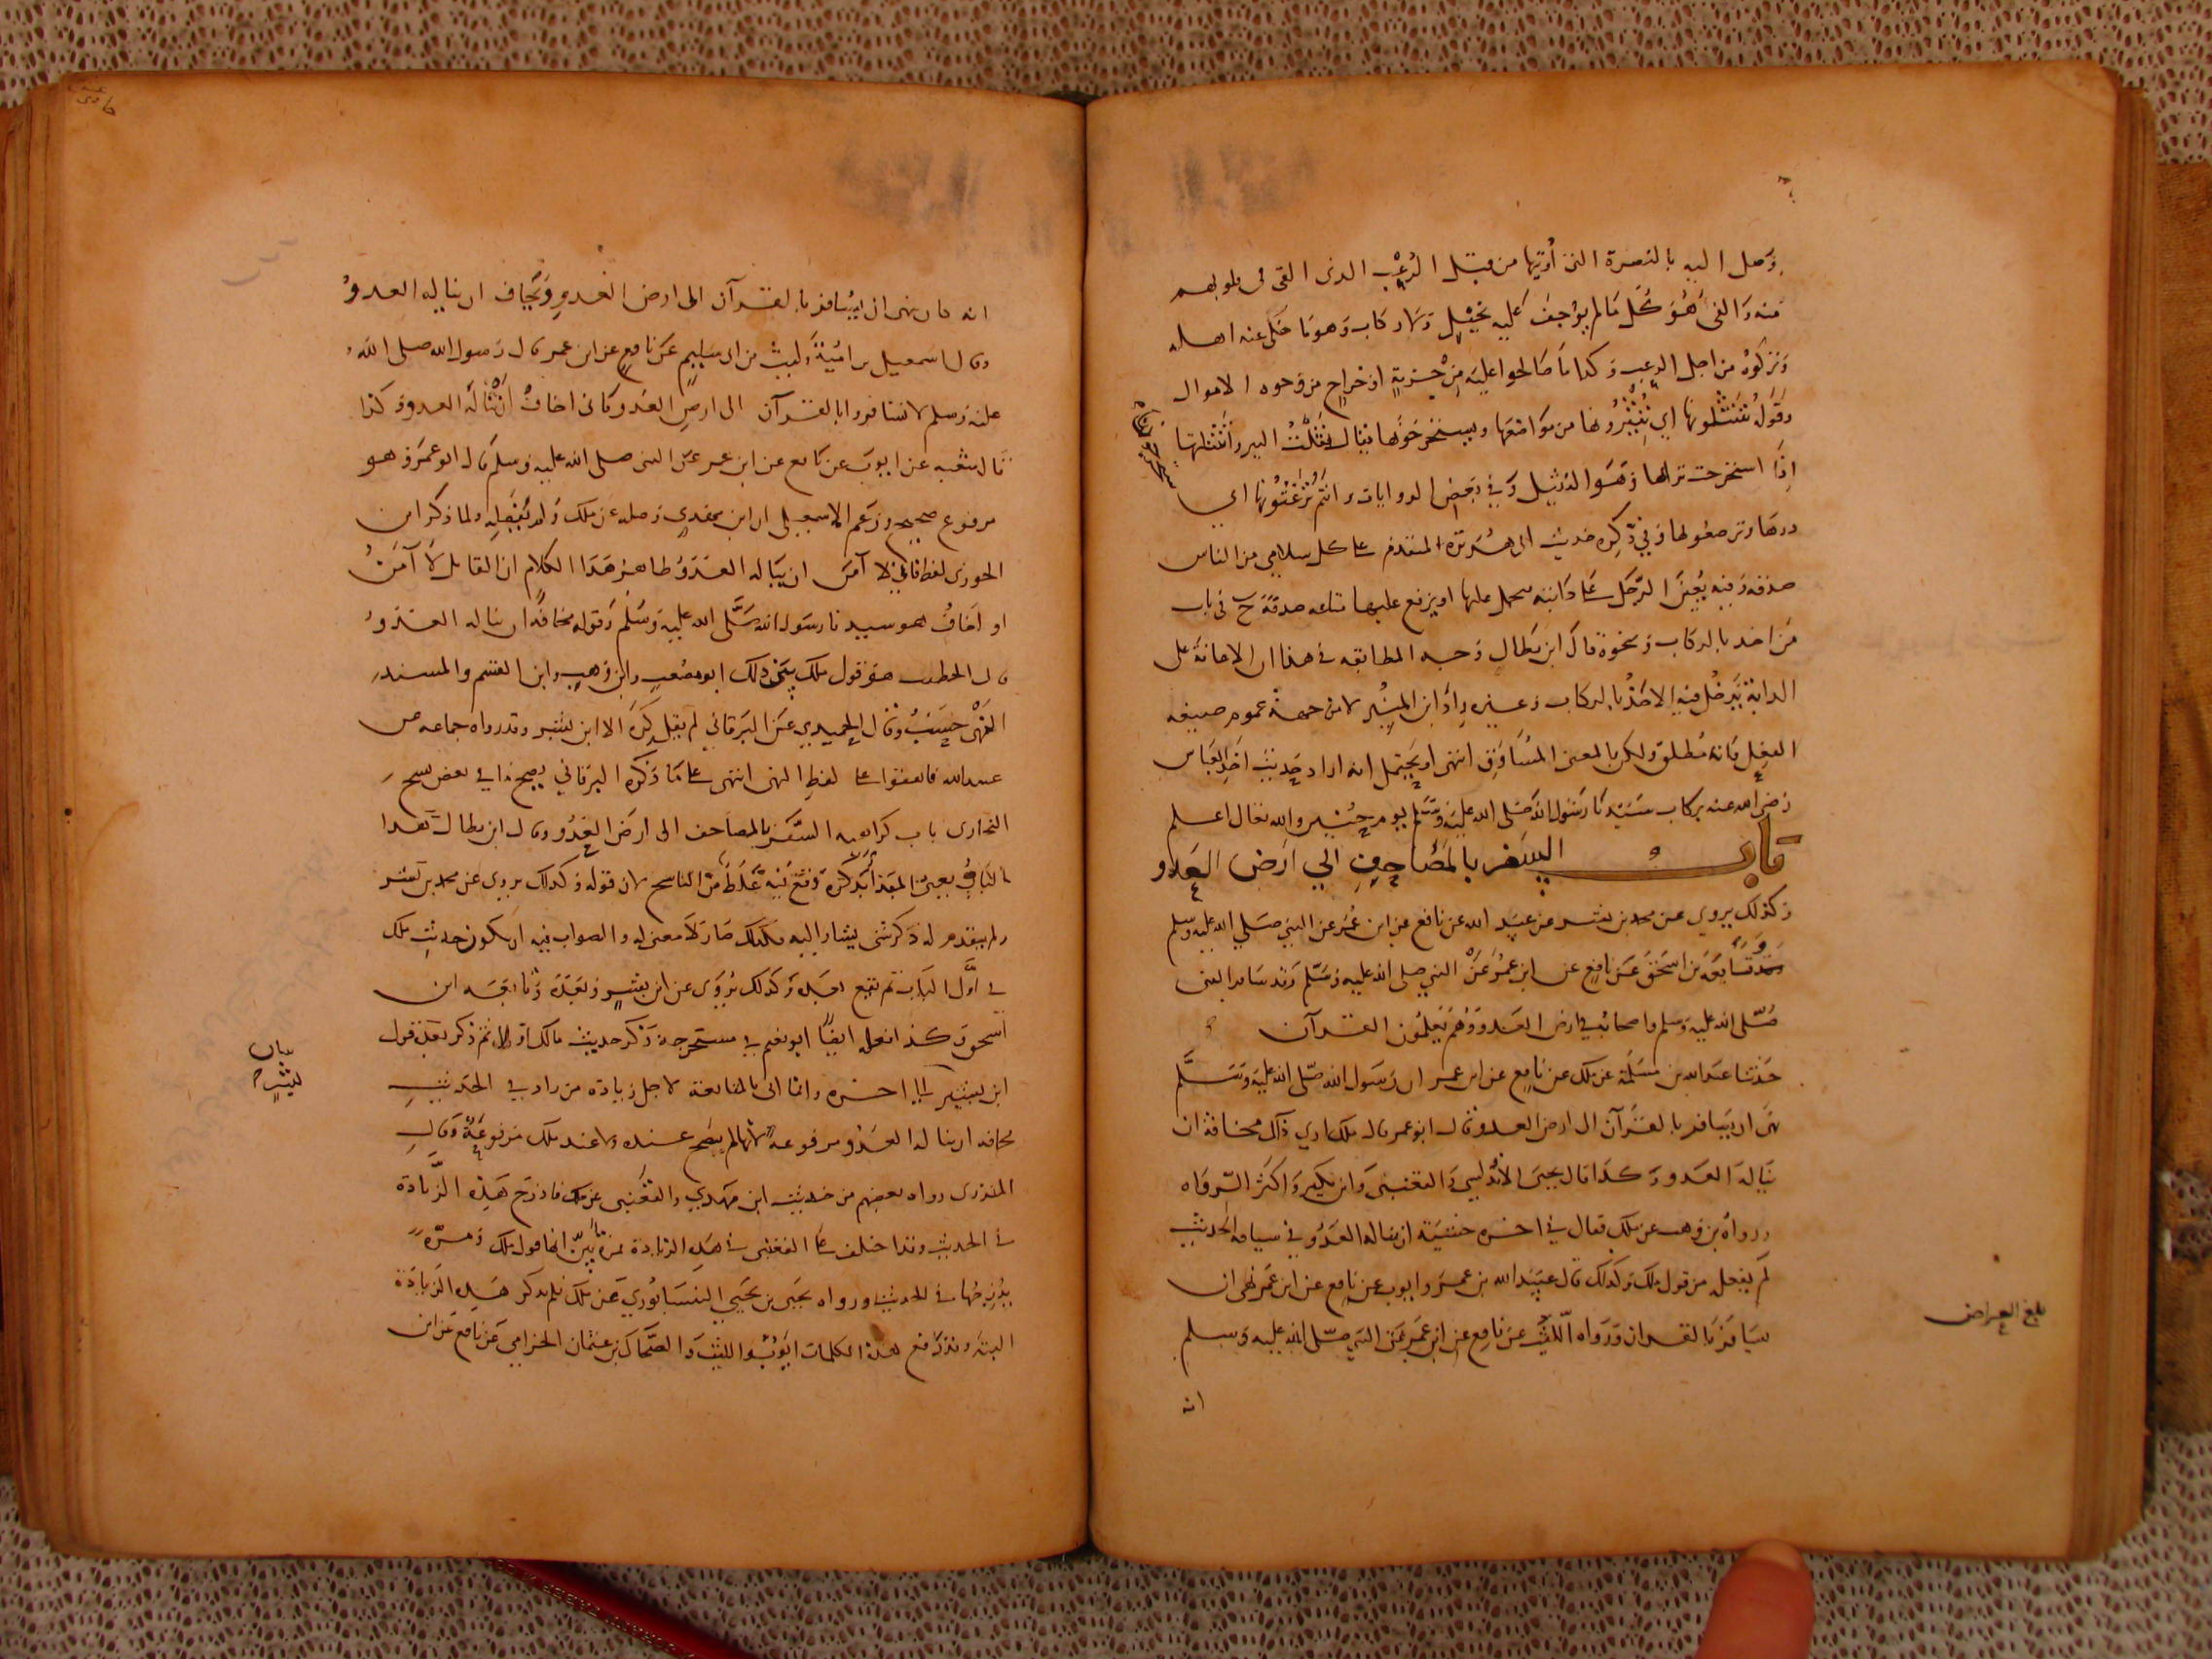 وصل اليه بالنصرة التي أوتيها من قبل الرعب الذي القى في قلوبهم
منه والفئ هو كل ما لم يوجف عليه بخيل ولا ركاب وهو ما خلى عنه اهله
وتركوه من اجل الرعب وكذا ما صالحوا عليه من جزية او خراج من وجوه الاموال
وقوله تنتثلونها اي تنثرونها من مواضعها ويستخرجونها يقال نثلت البير وانتثلتها
اذا استخرجت ترابها وهو النثيل وفي بعض الروايات وانتم ترغثونها اي
درها وترضعونها وفي ذكره حديث ابي هريرة المتقدم على كل سلامي من الناس
صدقة وفيه يعين الرجل على دابته يحمل عليها او يرفع عليها متاعه صدقة في باب
من اخذ بالركاب ونحوه قال ابن بطال وجه المطابقة في هذا ان الاعانة على
الدابة يدخل فيه الاخذ بالركاب وغيره زاد ابن المنير لا من جهة عموم صيغة
الفعل فانه مطلق ولكن بالمعنى المساوق انتهى او يحتمل انه اراد حديث اخذ العباس
رضي الله عنه بركاب سيدنا رسول الله صلى الله عليه وسلم يوم حنين والله تعالى اعلم
باب السفر بالمصاحف الي ارض العدو
وكذلك يروي عن محمد بن بشر عن عبيد الله عن نافع عن ابن عمر عن النبي صلي الله عليه وسلم
وتابعه بن اسحق عن نافع عن ابن عمر عن النبي صلى الله عليه وسلم وقد سافر النبي
صلى الله عليه وسلم واصحابه في ارض العدو وهم يعلمون القرآن
حدثنا عبد الله بن مسلمة عن ملك عن نافع عن ابن عمر ان رسول الله صلى الله عليه وسلم
نهى ان يسافر بالقرآن الى ارض العدو قال ابو عمر قال ملك اري ذلك مخافة ان
يناله العدو وكذا قال يحيى الاندلسي والقعنبي وابن بكير واكثر الرواه
ورواه بن وهب عن ملك فقال في اخره خشية ان يناله العدو في سياقه الحديث
لم يجعله من قول ملك وكذلك قال عبيد الله بن عمر وايوب عن نافع عن ابن عمر نهى ان
يسافر بالقران ورواه الليث عن نافع عن ابن عمر عن النبي صلى الله عليه وسلم
انه
بلغ العراض
انه كان ينهى ان يسافر بالقرآن الى ارض العدو ويخاف ان يناله العدو
وقال اسمعيل بن امية وليث بن ابي سليم عن نافع عن ابن عمر قال رسول الله صلى الله
عليه وسلم لا تسافروا بالقرآن الى ارض العدو فاني اخاف ان يناله العدو وكذا
قال شعبه عن ايوب عن نافع عن ابن عمر عن النبي صلى الله عليه وسلم قال ابو عمر وهو
مرفوع صحيح وزعم الاسمعيلي ان ابن مهدي وصله عن ملك ولم يفصله ولما ذكر ابن
الجوزي لفظ فاني لا آمن ان يناله العدو ظاهر هذا الكلام ان القايل لا آمن
او اخاف هو سيدنا رسول الله صلى الله عليه وسلم وقوله مخافة ان يناله العدو
قال الخطيب هو قول ملك بين ذلك ابو مصعب وابن وهب وابن القسم والمسند
النهي حسب وقال الحميدي عن البرقاني لم يقل كره الا ابن بشر وقد رواه جماعه عن
عبيد الله فاتفقوا على لفظ النهي انتهى على ما ذكره البرقاني يصح ما في بعض نسخ
البخاري باب كراهيه السفر بالمصاحف الى ارض العدو وقال ابن بطال هذا
الباب يعني المبدأ بذكره وقع فيه غلط من الناسخ لان قوله وكذلك يروي عن محمد بن بشر
ولم يتقدم له ذكر شئ يشار اليه بكذلك صار لا معنى له والصواب فيه ان يكون حديث ملك
في اول الباب ثم يقع بعده وكذلك يروى عن ابن بشر وبعده وتابعه ابن
اسحق وكذا فعله ايضا ابو نعيم في مستخرجه وذكر حديث مالك اولا ثم ذكر بعده قول
ابن بشر الي اخره وانما اتى بالمتابعة لاجل زيادة من زاد في الحديث
مخافه ان يناله العدو مرفوعه لانها لم يصح عنده ولا عند ملك مرفوعة وقال
المنذري رواه بعضهم من حديث ابن مهدي والقعنبي عن ملك فادرج هذه الزيادة
في الحديث وقد اختلف على القعنبي في هذه الزيادة فمرة بين انها قول ملك ومرة
يدرجها في الحديث ورواه يحيى بن يحيى النيسابوري عن ملك فلم يذكر هذه الزيادة
البتة وقد رفع هذه الكلمات ايوب والليث والضحاك بن عثمان الحزامي عن نافع عن ابن
بيان
بشر